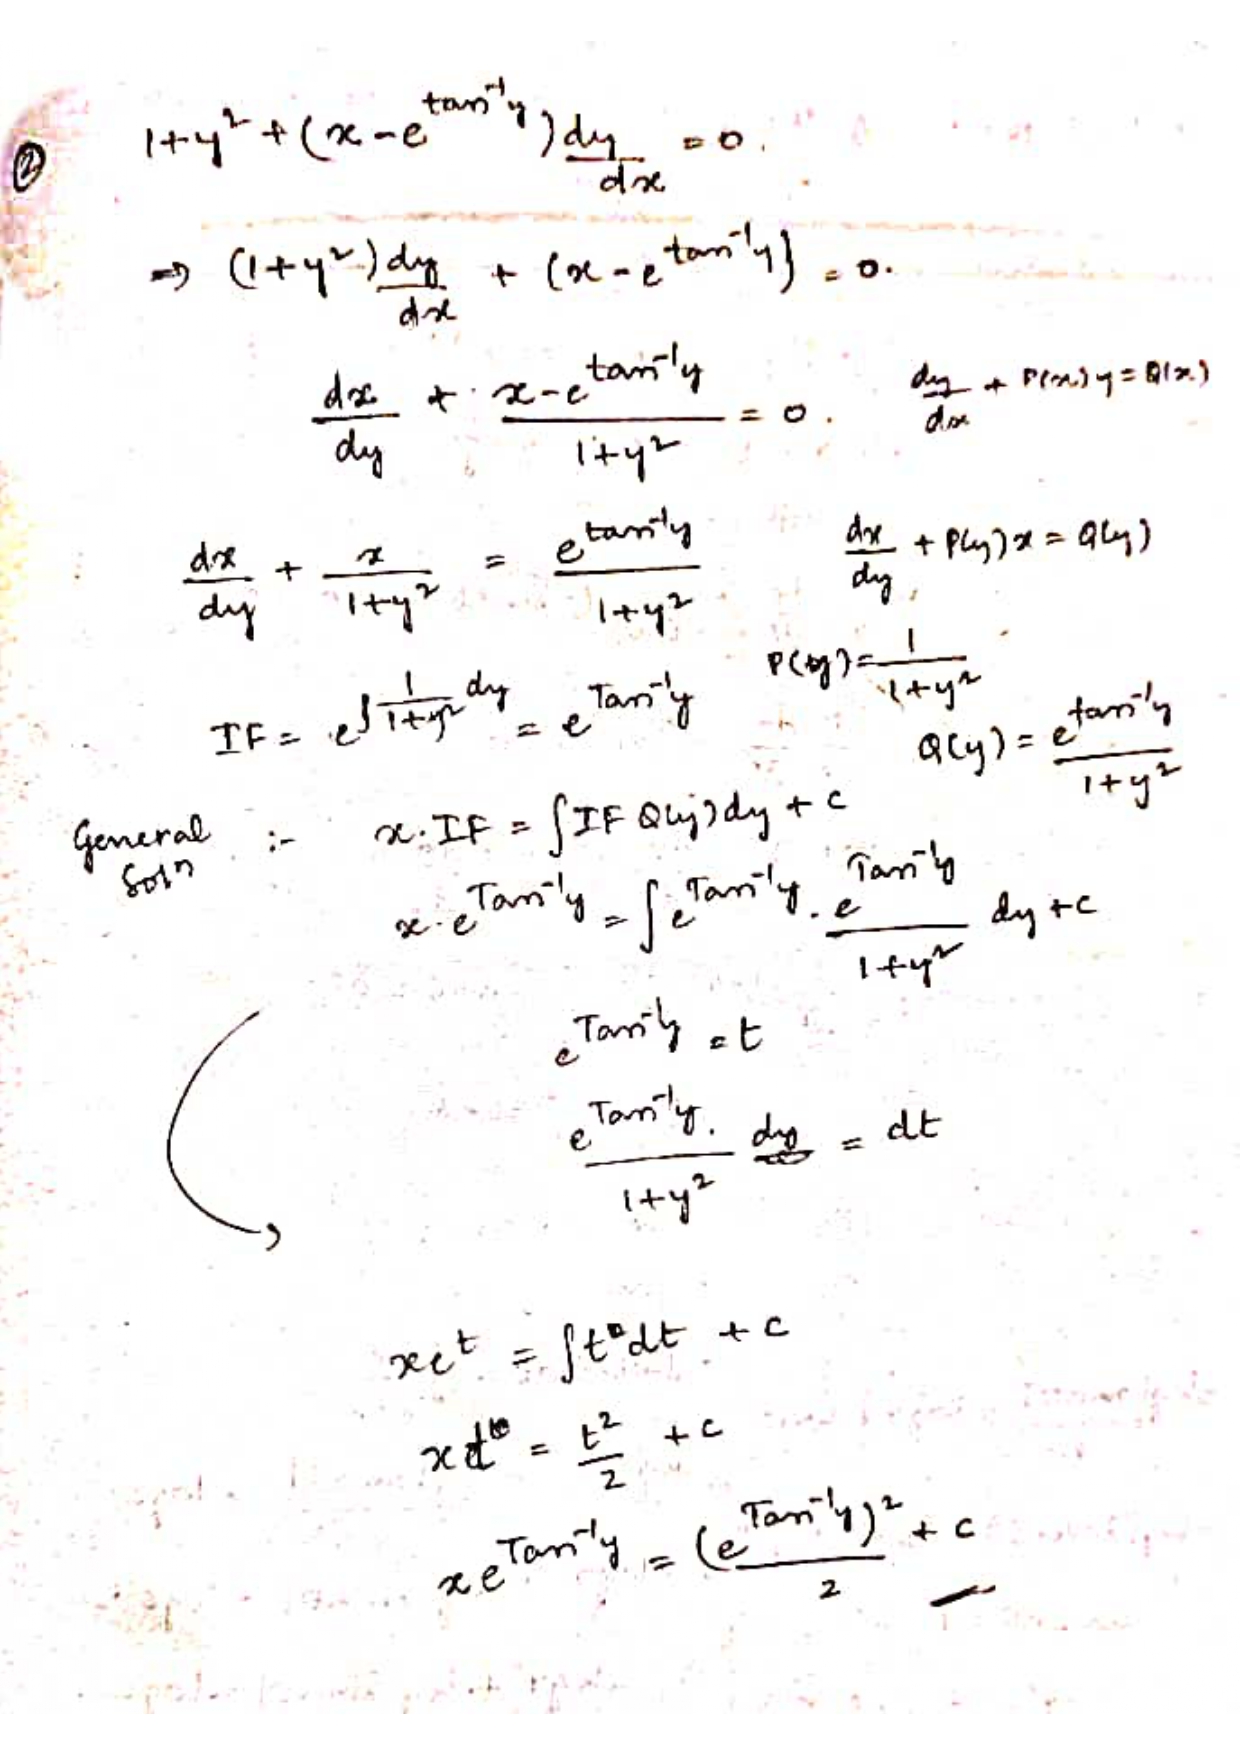 ② 1+y² + (x - e^{tan⁻¹y}) dy/dx = 0.
⇒ (1+y²) dy/dx + (x - e^{tan⁻¹y}) = 0.
dx/dy + (x - e^{tan⁻¹y})/(1+y²) = 0. dy/dx + P(x)y = Q(x)
dx/dy + x/(1+y²) = e^{tan⁻¹y}/(1+y²) dx/dy + P(y)x = Q(y)
P(y) = 1/(1+y²)
IF = e^{∫ 1/(1+y²) dy} = e^{Tan⁻¹y} Q(y) = e^{tan⁻¹y}/(1+y²)
General Solⁿ :- x·IF = ∫IF Q(y)dy + c
x·e^{Tan⁻¹y} = ∫e^{Tan⁻¹y} · e^{Tan⁻¹y}/(1+y²) dy + c
e^{Tan⁻¹y} = t
e^{Tan⁻¹y}·/(1+y²) dy = dt
xe^t = ∫t dt + c
xt = t²/2 + c
xe^{Tan⁻¹y} = (e^{Tan⁻¹y})²/2 + c